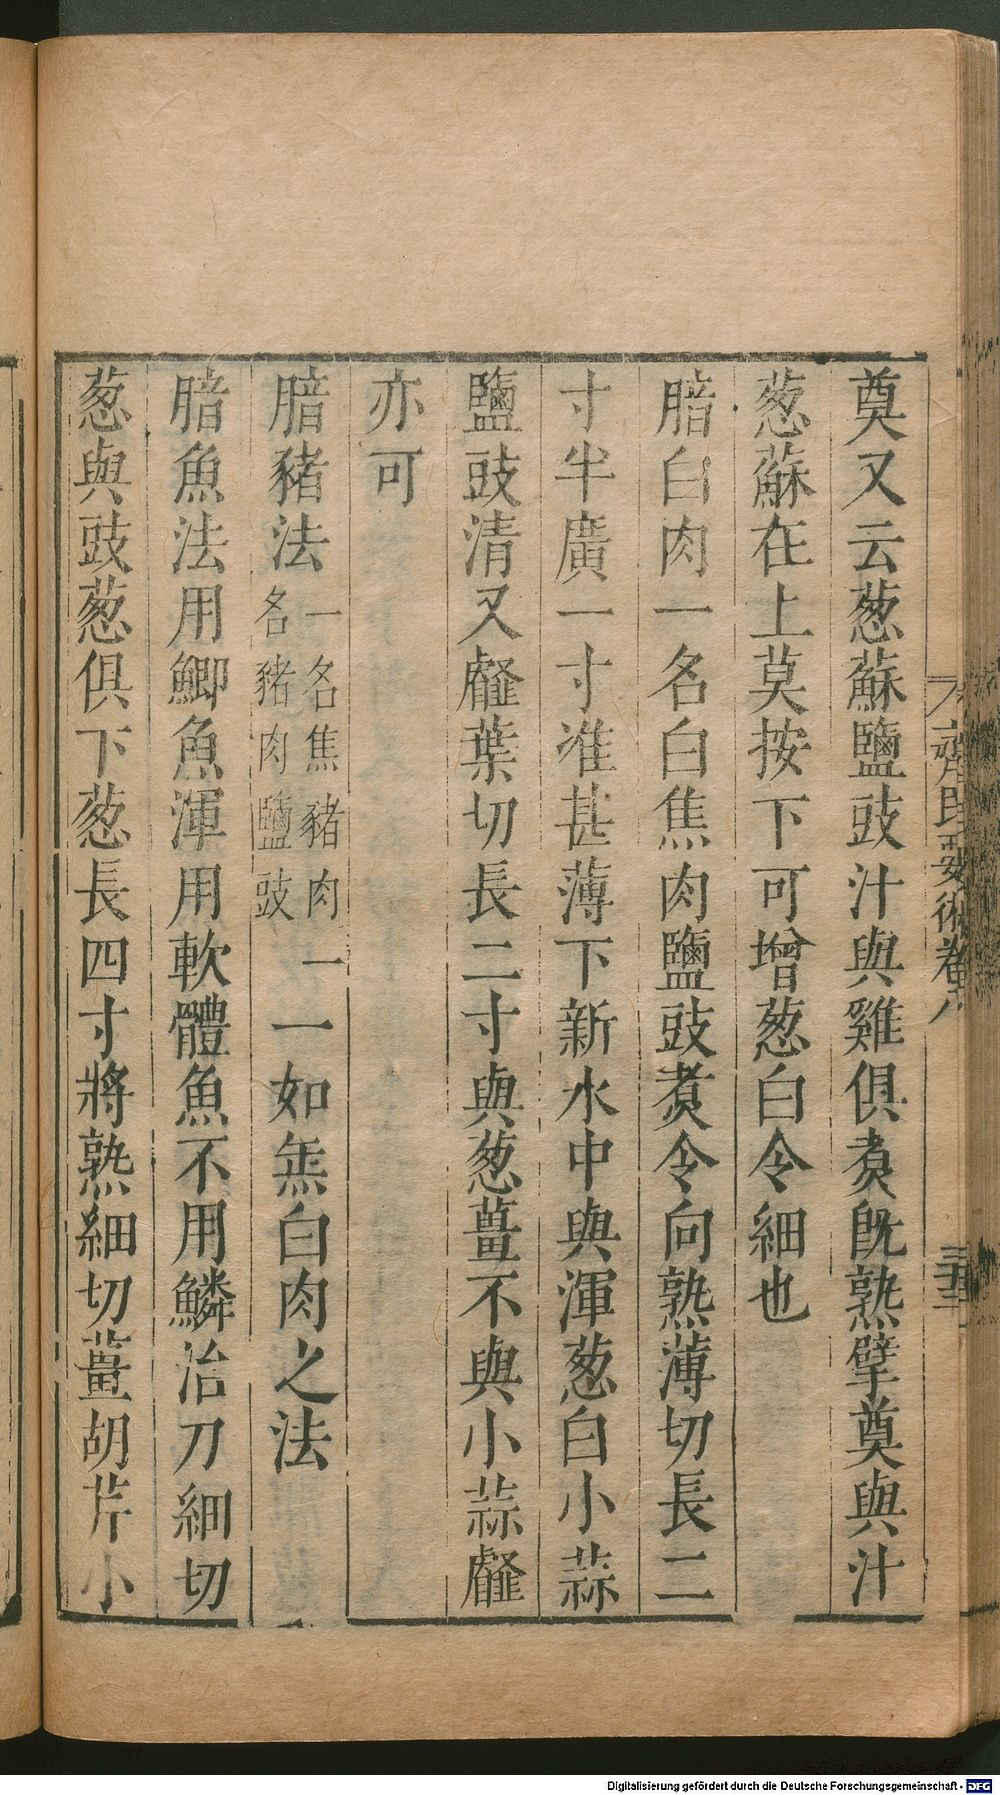 奠又云葱蘇鹽豉汁與雞俱煑旣熟擘奠與汁
葱蘇在上莫按下可增葱白令細也
腤白肉一名白焦肉鹽豉煑令向熟薄切長二
寸半廣一寸准甚薄下新水中與渾葱白小蒜
鹽豉清又䪥葉切長二寸與葱薑不與小蒜䪥
亦可
腤豬法一名焦豬肉一名豬肉鹽豉一如焦白肉之法
腤魚法用鯽魚渾用軟體魚不用鱗治刀細切
葱與豉葱俱下葱長四寸將熟細切薑胡芹小
齊民要術卷八
Digitalisierung gefördert durch die Deutsche Forschungsgemeinschaft - DFG